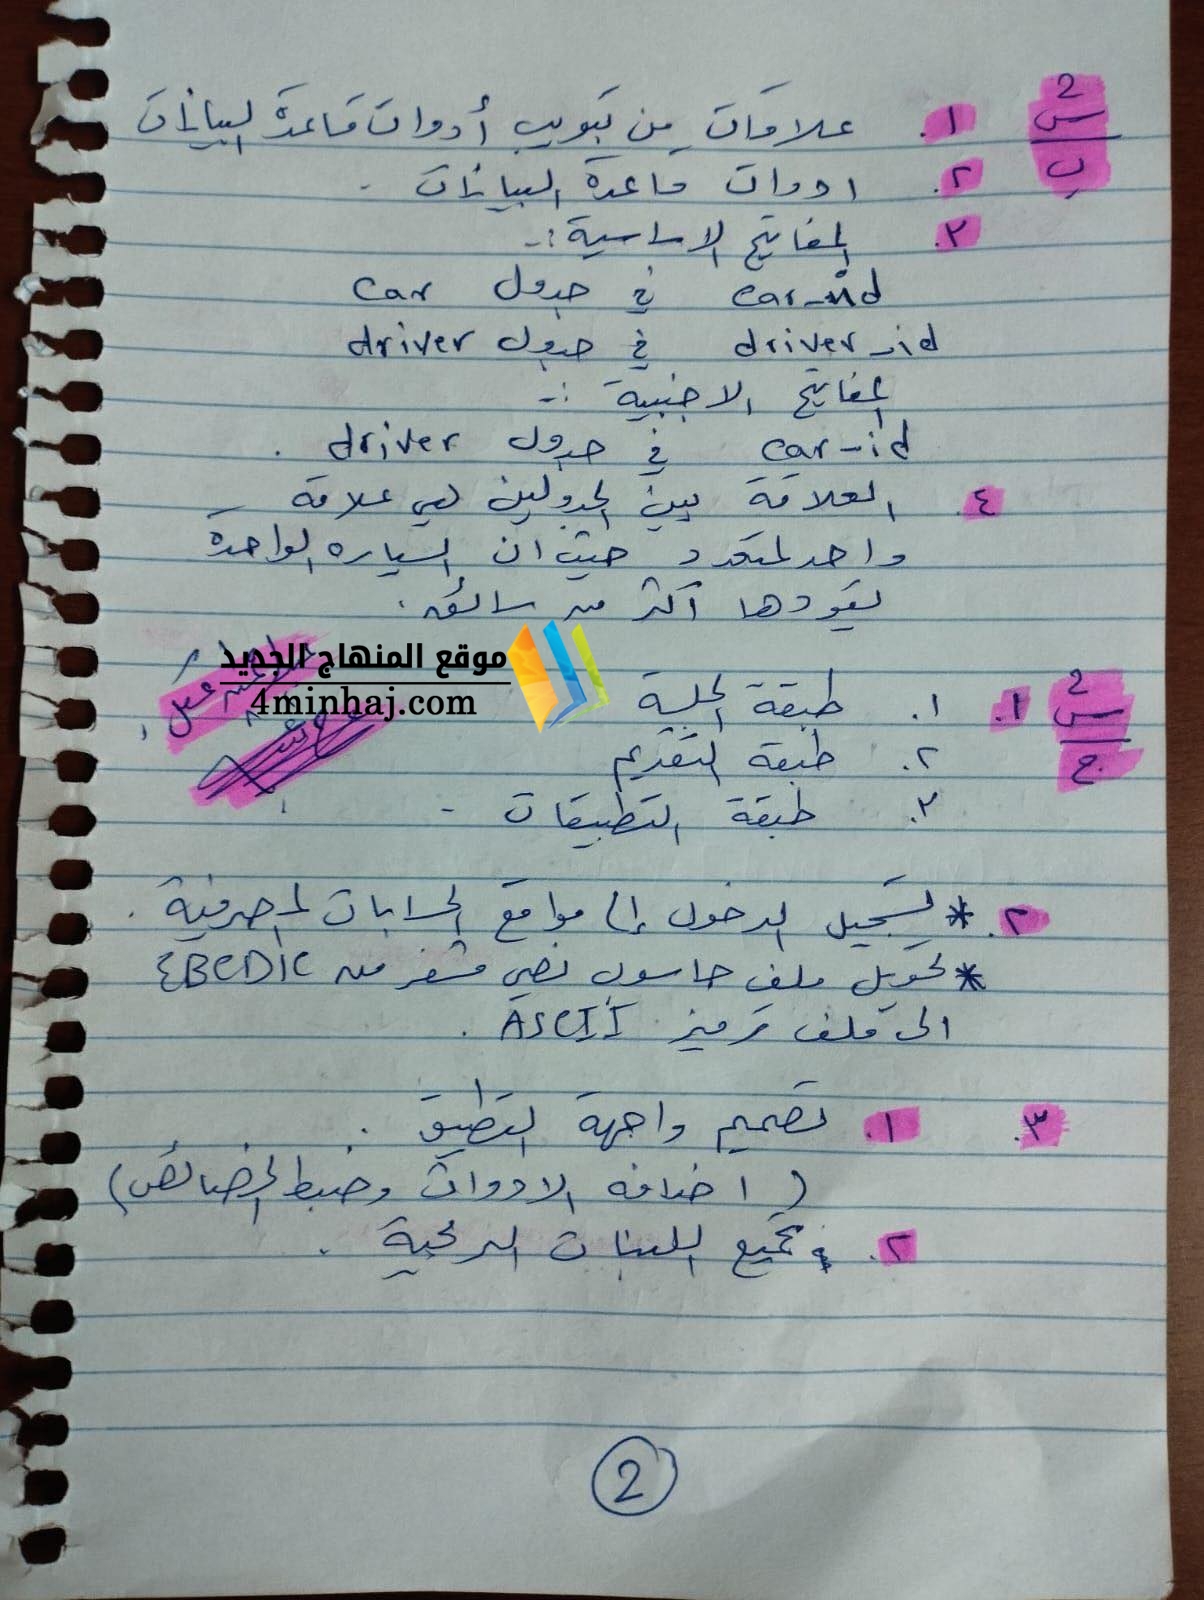 س2
ب
١. علاقات من تبويب أدوات قاعدة البيانات
٢. ادوات قاعدة البيانات .
٣. المفاتيح الاساسية :-
car_id في جدول car
driver_id في جدول driver
المفاتيح الاجنبية :-
car_id في جدول driver .
٤. العلاقة بين الجدولين هي علاقة
واحد لمتعدد حيث ان السياره الواحدة
يقودها أكثر من سائق .
موقع المنهاج الجديد
4minhaj.com
س2
ج
١. ١. طبقة الجلسة
٢. طبقة التقديم
٣. طبقة التطبيقات .
٢. * تسجيل الدخول إلى مواقع الحسابات المصرفية .
* تحويل ملف حاسوب نصي مشفر من EBCDIC
الى ملف ترميز ASCII .
٣. ١. تصميم واجهة التطبيق .
( اضافه الادوات وضبط الخصائص )
٢. تجميع اللبنات البرمجية .
2